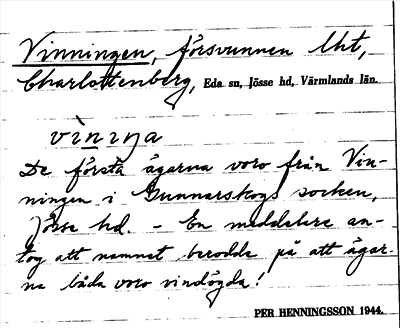 Vinningen, försvunnen lht,
Charlottenberg, Eda sn, Jösse hd, Värmlands län.
vìnıŋa
De första ägarna voro från Vin-
ningen i Gunnarskogs socken,
Jösse hd. – En meddelare an-
tog att namnet berodde på att ägar-
na båda voro vindögda!
PER HENNINGSSON 1944.